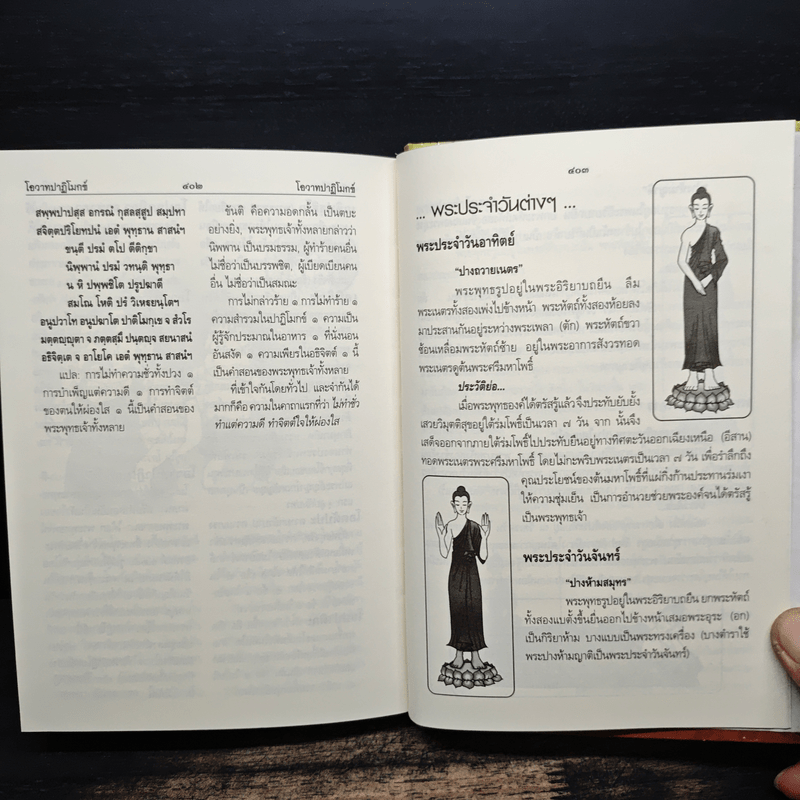 โอวาทปาฏิโมกข์ ๔๐๒ โอวาทปาฏิโมกข์
สพฺพปาปสฺส อกรณํ กุสลสฺสูป สมฺปทา
สจิตฺตปริโยทปนํ เอตํ พุทฺธาน สาสนํฯ
ขนฺตี ปรมํ ตโป ตีติกฺขา
นิพฺพานํ ปรมํ วทนฺติ พุทฺธา
น หิ ปพฺพชิโต ปรูปฆาตี
สมโณ โหติ ปรํ วิเหฐยนฺโตฯ
อนูปวาโท อนูปฆาโต ปาติโมกฺเข จ สํวโร
มตฺตญฺญุตา จ ภตฺตสฺมึ ปนฺตญฺจ สยนาสนํ
อธิจิตฺเต จ อาโยโค เอตํ พุทฺธาน สาสนํฯ
แปล: การไม่ทำความชั่วทั้งปวง ๑
การบำเพ็ญแต่ความดี ๑ การทำจิตต์
ของตนให้ผ่องใส ๑ นี้เป็นคำสอนของ
พระพุทธเจ้าทั้งหลาย
ขันติ คือความอดกลั้น เป็นตบะ
อย่างยิ่ง, พระพุทธเจ้าทั้งหลายกล่าวว่า
นิพพาน เป็นบรมธรรม, ผู้ทำร้ายคนอื่น
ไม่ชื่อว่าเป็นบรรพชิต, ผู้เบียดเบียนคน
อื่น ไม่ชื่อว่าเป็นสมณะ
การไม่กล่าวร้าย ๑ การไม่ทำร้าย ๑
ความสำรวมในปาฏิโมกข์ ๑ ความเป็น
ผู้รู้จักประมาณในอาหาร ๑ ที่นั่งนอน
อันสงัด ๑ ความเพียรในอธิจิตต์ ๑ นี้
เป็นคำสอนของพระพุทธเจ้าทั้งหลาย
ที่เข้าใจกันโดยทั่วไป และจำกันได้
มากก็คือ ความในคาถาแรกที่ว่า ไม่ทำชั่ว
ทำแต่ความดี ทำจิตต์ใจให้ผ่องใส
๔๐๓
... พระประจำวันต่างๆ ...
พระประจำวันอาทิตย์
“ปางถวายเนตร”
พระพุทธรูปอยู่ในพระอิริยาบถยืน ลืม
พระเนตรทั้งสองเพ่งไปข้างหน้า พระหัตถ์ทั้งสองห้อยลง
มาประสานกันอยู่ระหว่างพระเพลา (ตัก) พระหัตถ์ขวา
ซ้อนเหลื่อมพระหัตถ์ซ้าย อยู่ในพระอาการสังวรทอด
พระเนตรดูต้นพระศรีมหาโพธิ์
ประวัติย่อ...
เมื่อพระพุทธองค์ได้ตรัสรู้แล้วจึงประทับยับยั้ง
เสวยวิมุตติสุขอยู่ใต้ร่มโพธิ์เป็นเวลา ๗ วัน จาก นั้นจึง
เสด็จออกจากภายใต้ร่มโพธิ์ไปประทับยืนอยู่ทางทิศตะวันออกเฉียงเหนือ (อีสาน)
ทอดพระเนตรพระศรีมหาโพธิ์ โดยไม่กะพริบพระเนตรเป็นเวลา ๗ วัน เพื่อรำลึกถึง
คุณประโยชน์ของต้นมหาโพธิ์ที่แผ่กิ่งก้านประทานร่มเงา
ให้ความชุ่มเย็น เป็นการอำนวยช่วยพระองค์จนได้ตรัสรู้
เป็นพระพุทธเจ้า
พระประจำวันจันทร์
“ปางห้ามสมุทร”
พระพุทธรูปอยู่ในพระอิริยาบถยืน ยกพระหัตถ์
ทั้งสองแบตั้งขึ้นยื่นออกไปข้างหน้าเสมอพระอุระ (อก)
เป็นกิริยาห้าม บางแบบเป็นพระทรงเครื่อง (บางตำราใช้
พระปางห้ามญาติเป็นพระประจำวันจันทร์)